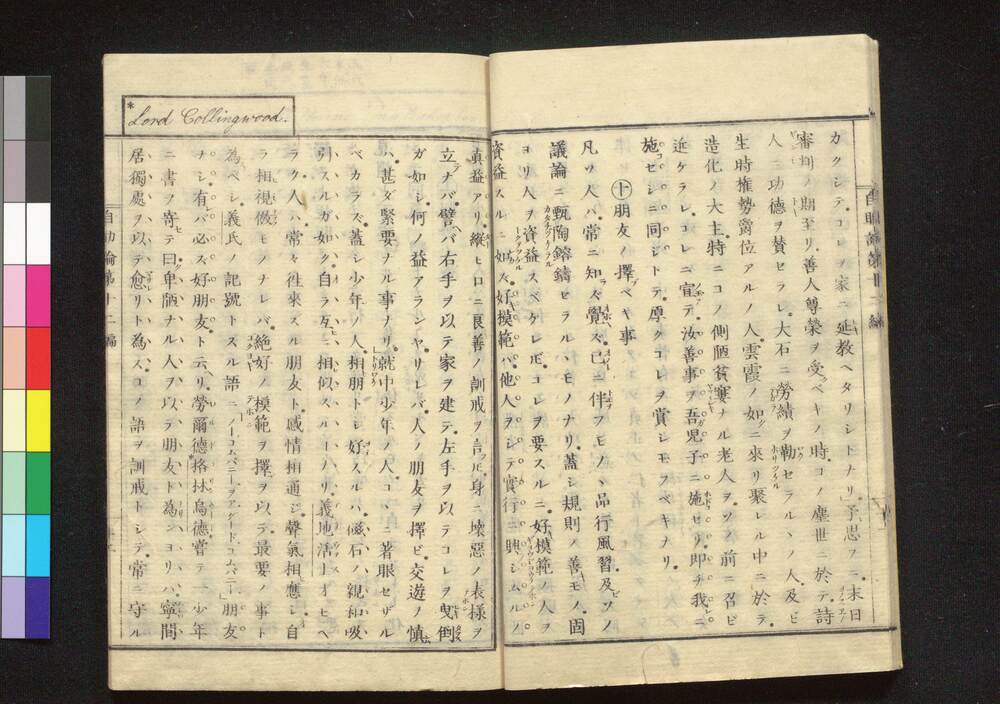 自助論第十二編
カクシテ。コレヲ家ニ延教ヘタリシトナリ」予思フニ。末日
審判ノ期至リ。善人尊榮ヲ受ベキノ時。コノ塵世ニ於テ。詩
人ニ功德ヲ賛セラレ。大石ニ勞績ヲ勒セラルヽノ人。及ビ
生時權勢爵位アルノ人。雲霞ノ如クニ來リ聚レル中ニ於テ。
造化ノ大主。特ニコノ側陋貧窶ナル老人ヲ。ソノ前ニ召ビ
近ケラレ。コレニ宣テ。汝善事ヲ吾児子ニ施セリ。即チ我ニ
施セシニ同ジトテ。厚クコレヲ賞シ玉フベキナリ。
㊉朋友ノ擇ブベキ事
凡ソ人ハ常ニ知ラズ覺エズ。己ニ伴フモノヽ品行風習及ビソノ
議論ニ。甄陶鎔鑄セラルヽモノナリ。蓋シ規則ノ善モノ。固
ヨリ人ヲ資益スベケレ𪜈。コレヲ要スルニ。好模範ノ人ヲ
資益スルニ如ズ。好模範ハ。他人ヲシテ實行ニ興シムルノ
*Lord Collingwood.
眞益アリ。縱ヒ口ニ良善ノ訓戒ヲ言フ𪜈。身ニ壞惡ノ表樣ヲ
立テナバ。譬ヘバ右手ヲ以テ家ヲ建テ。左手ヲ以テコレヲ曳倒ス
ガ如シ。何ノ益アランヤ。サレバ人ノ朋友ヲ擇ビ。交遊ノ慎
ハ。甚ダ緊要ナル事ナリ。」就中少年ノ人。コヽニ著眼セザル
ベカラズ。蓋シ少年ノ人。相朋トシ好スルハ。磁石ノ親和吸
引スルガ如ク。自ラ互ニ相似スルニ至ルナリ。義地活
ラク。人ハ常々往來スル朋友ト。感情相通ジ。聲氣相應ジ。自
ラ相視傚モノナレバ。絶好ノ模範ヲ擇ヲ以テ。最要ノ事ト
為ベシ。義氏ノ記號トスル語ニ。ノーコムパニー。ヲア。グード。コムパニー」朋友
ナシ。有バ必ズ好朋友。ト云ヘリ。勞爾德*格林烏德嘗テ一少年
ニ書ヲ寄セテ曰ク。卑陋ナル人ヲ以テ朋友ト為ンヨリハ。寧間
居獨處ヲ以テ愈リト為ス。コノ語ヲ訓戒トシテ。常ニ守ル
自助論第十二編